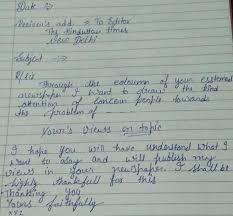 Date :->
Reciver's add. = To Editor
The Hindustan times
New Delhi
Subject :->
R/sir
Through the coloumn of your esstemed
newspaper I want to draw the kind
attention of concern people towards
the problem of
Your's Views on topic
I hope you will have understand what I
want to say and will publish my
views in your newspaper. I shall be
highly thankfull for this
Thanking you
Yours faithfully
XYZ